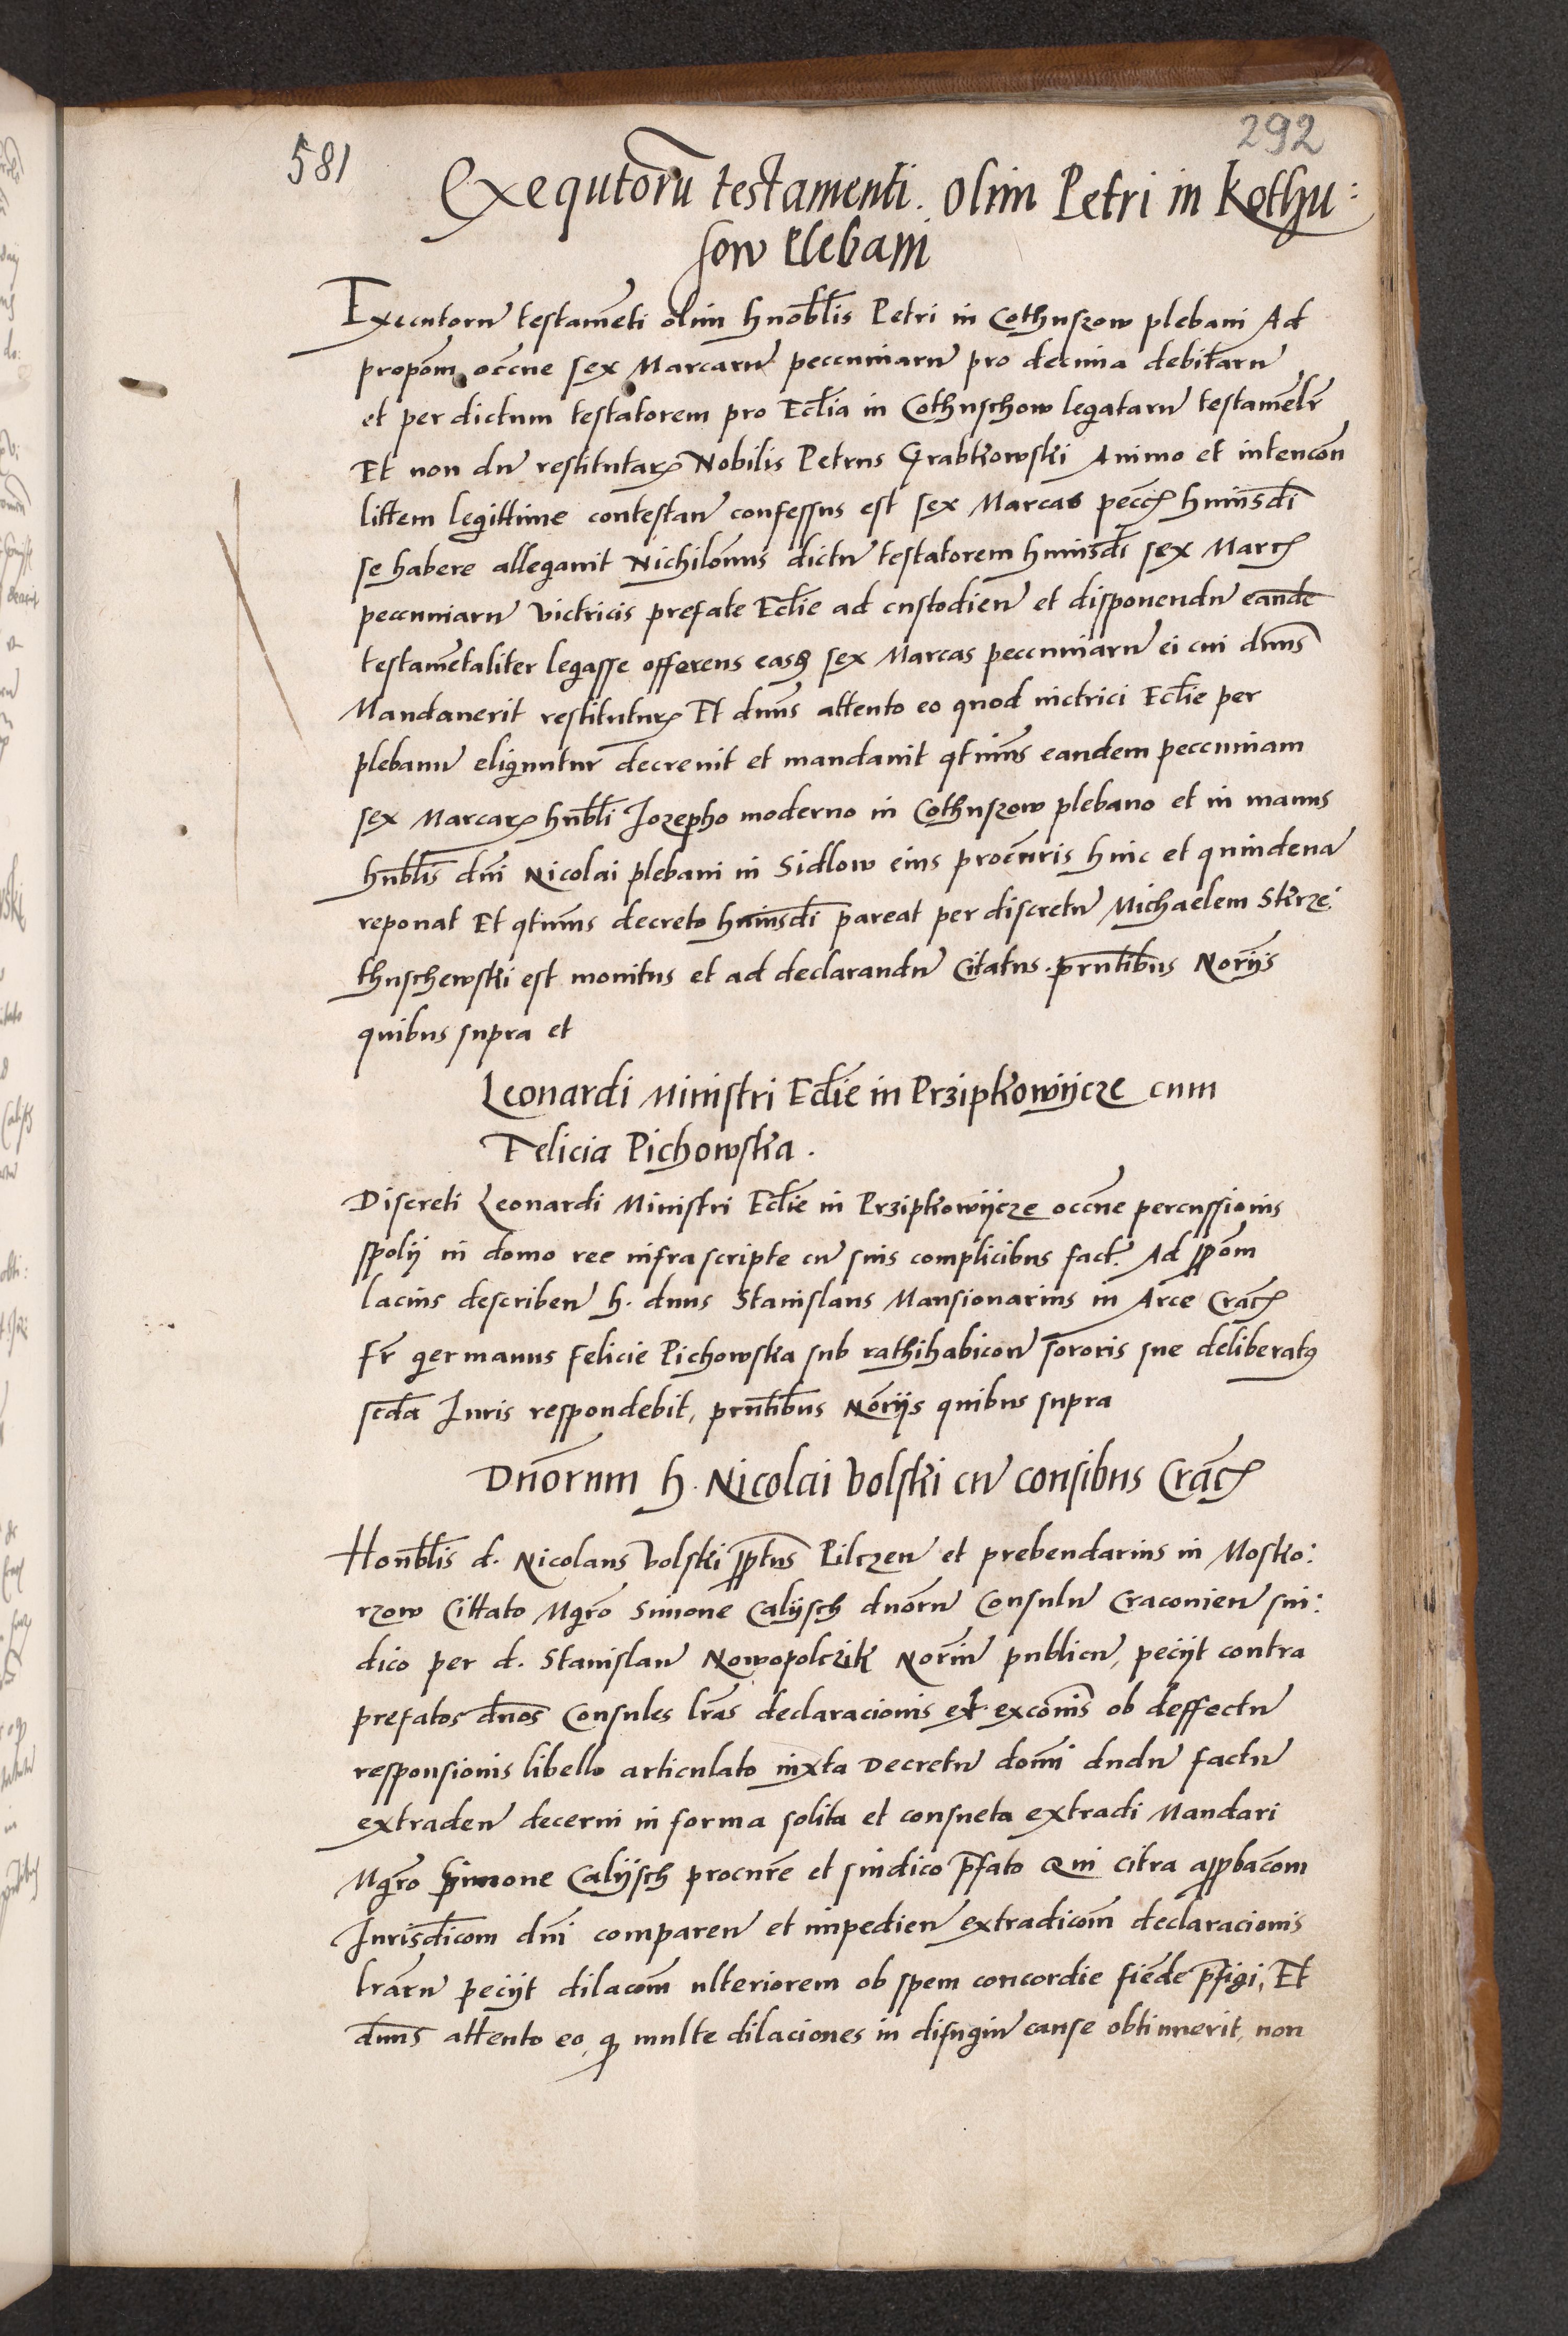 292
581
Exequtorũ testamenti. olim Petri in Kothu:
sow Plebani
Executorũ testamẽti olim hnobłis Petri in Cothuszow plebani Ad
propõm, occñe sex Marcarũ peccuniarũ pro decima debitarũ
et per dictum testatorem pro Ecclia in Cothuschow legatarũ testamẽlr
Et non dũ restitutarꝝ Nobilis Petrus Grabkowski Animo et intencõn
littem legittime contestañ confessus est sex Marcas peccꝝ huiusdi
se habere allegavit Nichilomus dictũ testatorem huiusdi sex Marcꝝ
peccuniarũ victricis prefate Ecclie ad custodien̄ et disponendũ eande
testamẽtaliter legasse offerens easqꝫ sex Marcas peccuniarũ ei cui dnus
Mandaverit restituturꝝ Et dnus attento eo quod victrici Ecclie per
plebanũ eliguntur decrevit et mandavit qtinus eandem peccuniam
sex Marcarꝝ hnbłi Jozepho moderno in Cothuszow plebano et in manus
hnblis dni Nicolai plebani in Sidlow eius procuris hinc et quindena
reponat Et qtinus decreto huiusdi pareat per discretũ Michaelem Skrze:
thuschewski est monitus et ad declarandũ Citatus. prntibus Norijs
quibus supra et
Leonardi Ministri Ecclie in Przipkowijcze cum
Felicia Pichowska.
Discreti Leonardi Ministri Ecclie in Przipkowijcze occñe percussionis
spolij in domo ree infra scripte cũ suis complicibus fact. Ad ppõm
lacius describeñ h. dnus Stanislaus Mansionarius in Arce Cracꝝ
fr̃ germanus Felicie Pichowska sub rathihabicoñ sororis sue deliberatꝰ
scda Juris respondebit, prntibus Norijs quibus supra
Dnorum h. Nicolai Volski cũ consibus Cracꝝ
Honblis d. Nicolaus Volski pptus Pilczeñ et prebendarius in Mosko:
rzow Cittato Mgro Simone Calijsch dnorũ Consulũ Cracovieñ sin:
dico per d. Stanislaũ Nowopolczik Noriũ publicũ, pecijt contra
prefatos dnos Consules lras declaracionis et excomis ob deffectũ
responsionis libello articulato iuxta Decretũ domi dudũ factũ
extradeñ decerni in forma solita et consueta extradi Mandari
Mgro Simone Calijsch procure et sindico pfato Qui citra appbacom
Jurisdicom dni compareñ et impedieñ extradicom declaracionis
lrarũ pecijt dilacom ulteriorem ob spem concordie fiende pfigi, Et
dnus attento eo, ꝙ multe dilaciones in disugiũ cause obtinuerit, non